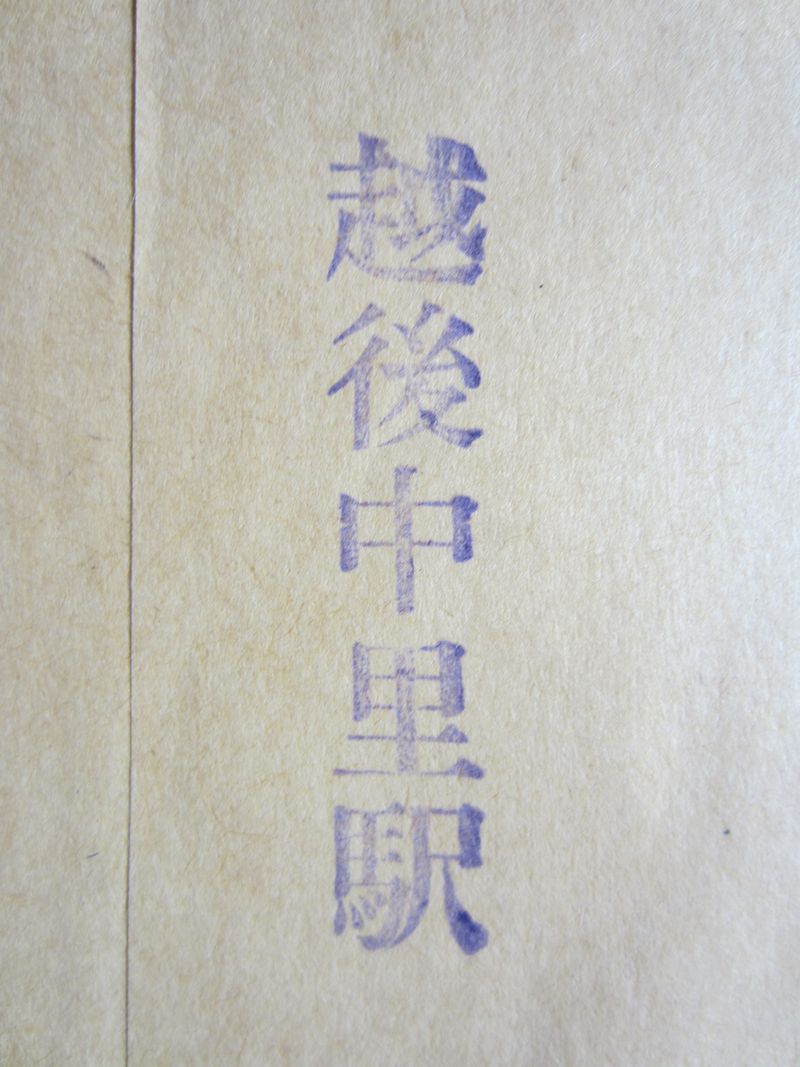 越後中里駅